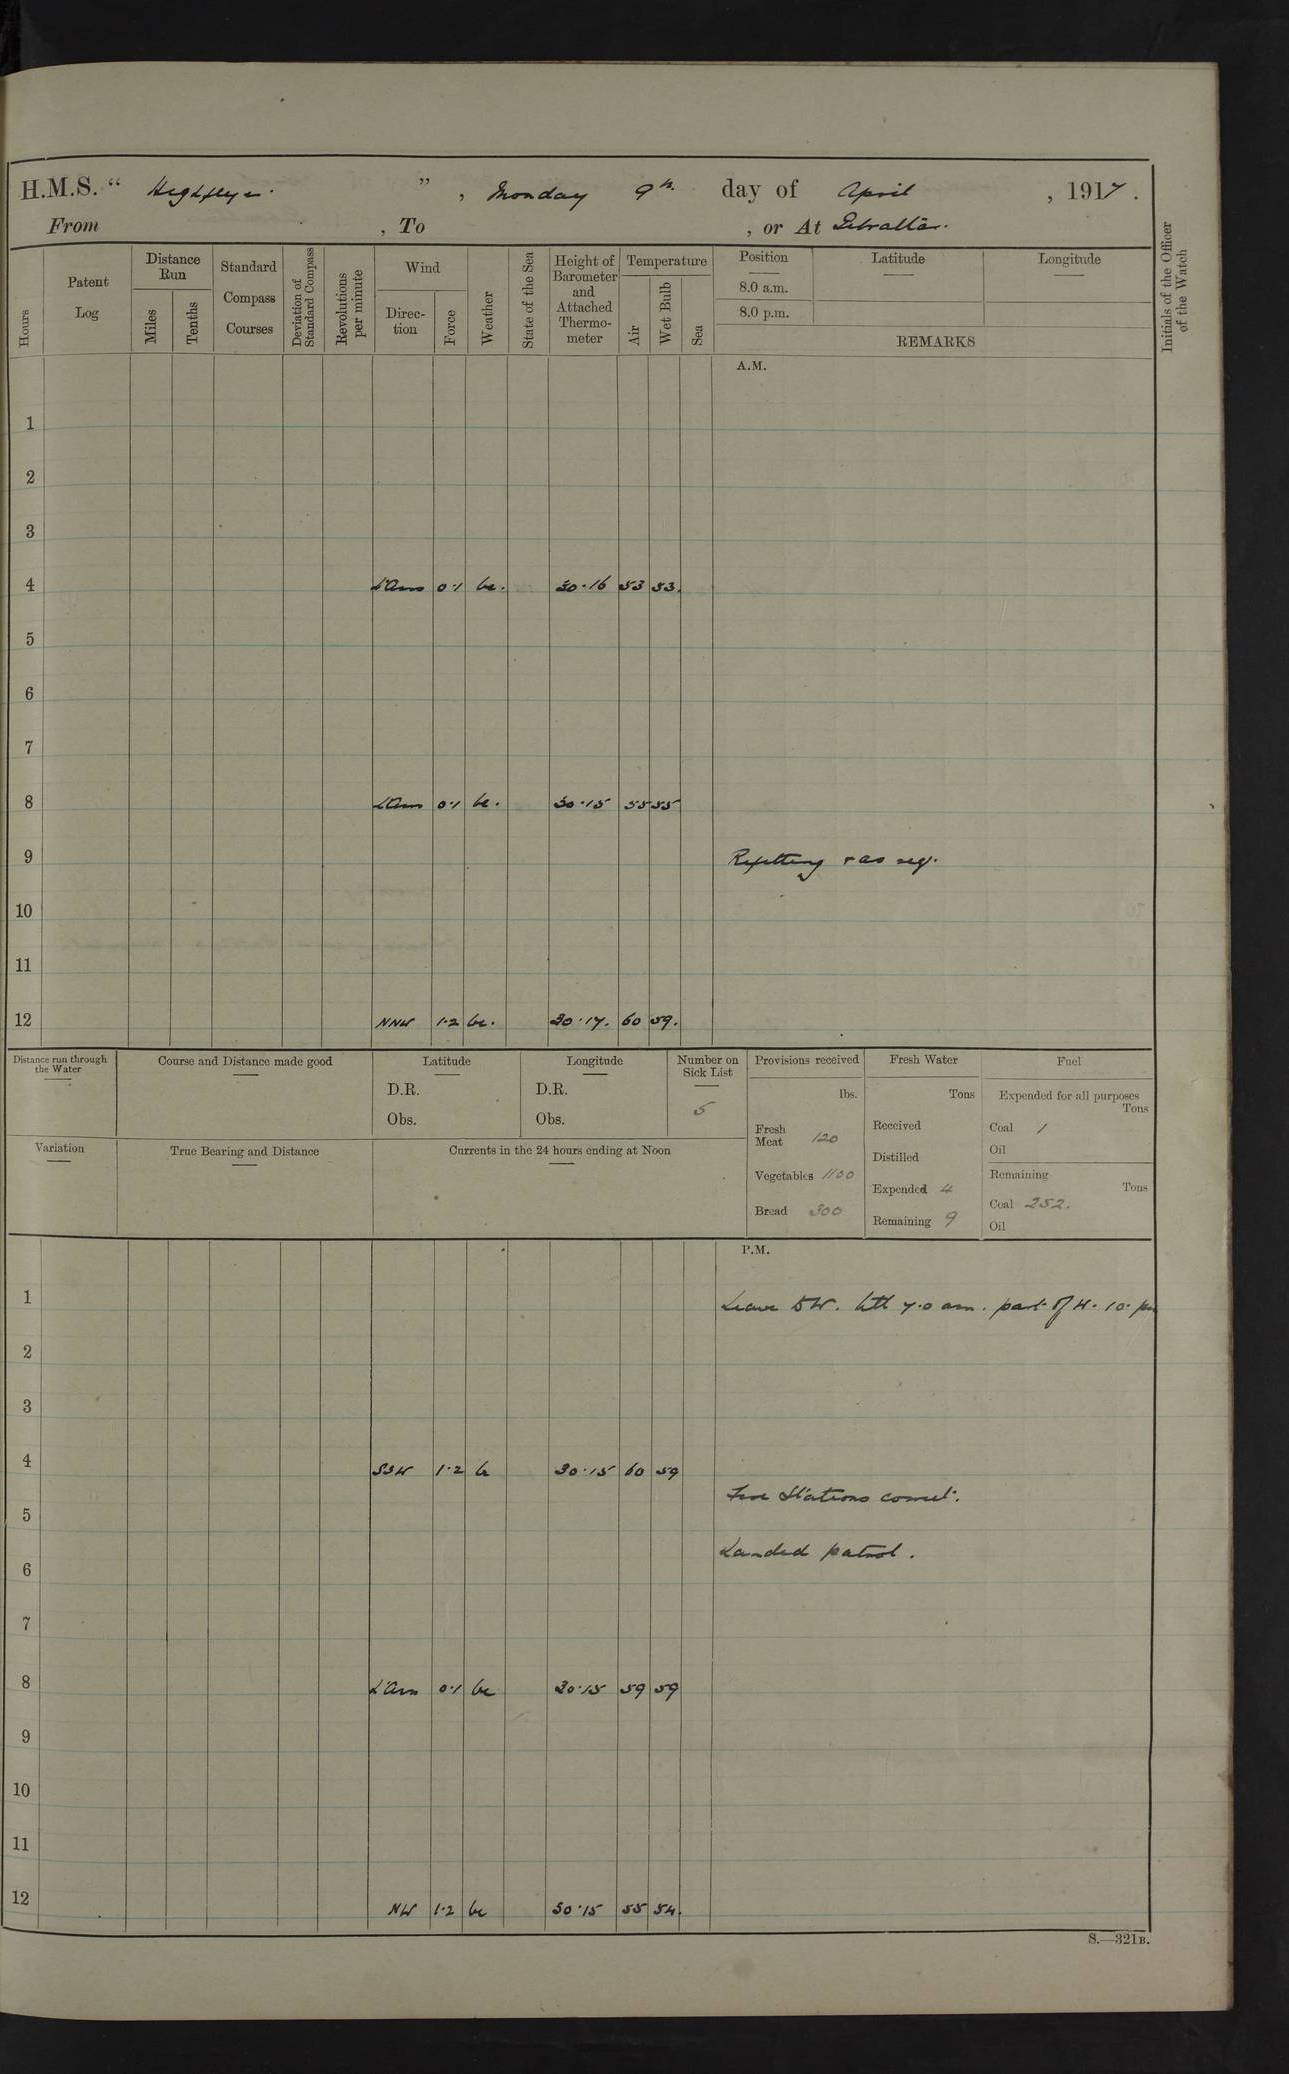 H.M.S. “ Highflyer ” , Monday 9th day of April , 1917 .
From , To , or At Gibraltar.
Hours
Patent Log
Distance Run
Miles
Tenths
Standard Compass Courses
Deviation of Standard Compass
Revolutions per minute
Wind
Direc-tion
Force
Weather
State of the Sea
Height of Barometer and Attached Thermo-meter
Temperature
Air
Wet Bulb
Sea
Position
8.0 a.m.
8.0 p.m.
Latitude
Longitude
REMARKS
Initials of the Officer of the Watch
A.M.
1
2
3
4 0·1 bc. 30·16 53 53.
5
6
7
8 0·1 bc. 30·15 55 55
9 Refitting & as req.
10
11
12 NNW 1·2 bc. 30·17. 60 59.
Distance run through the Water
Course and Distance made good
Latitude
D.R.
Obs.
Longitude
D.R.
Obs.
Number on Sick List
5
Provisions received
lbs.
Fresh Meat 120
Vegetables 1100
Bread 300
Fresh Water
Tons
Received
Distilled
Expended 4
Remaining 9
Fuel
Expended for all purposes
Tons
Coal 1
Oil
Remaining
Tons
Coal 252.
Oil
Variation
True Bearing and Distance
Currents in the 24 hours ending at Noon
P.M.
1 Leave till 7.0 am. part of W. 10. pm
2
3
4 SSW 1·2 b 30·15 60 59
Fire Stations correct.
5
Landed patrol.
6
7
8 0·1 bc 30·15 59 59
9
10
11
12 NW 1·2 bc 30·15 55 54.
S.—321B.